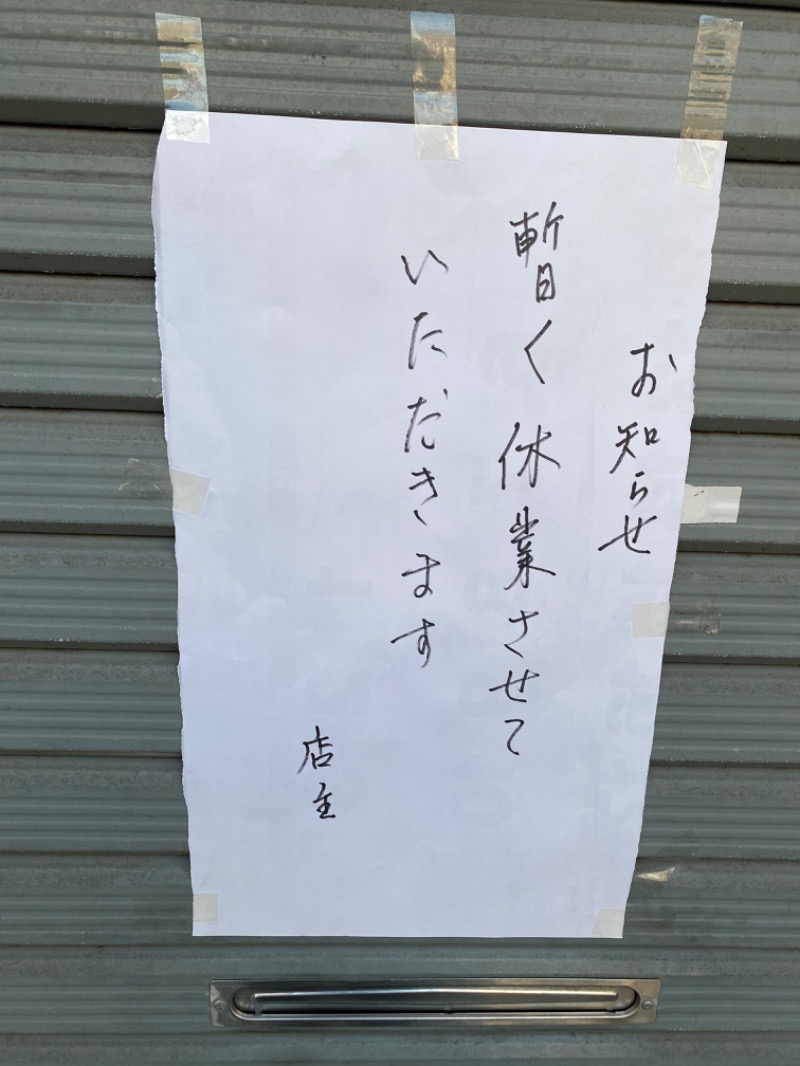 お知らせ
暫く休業させて
いただきます
店主